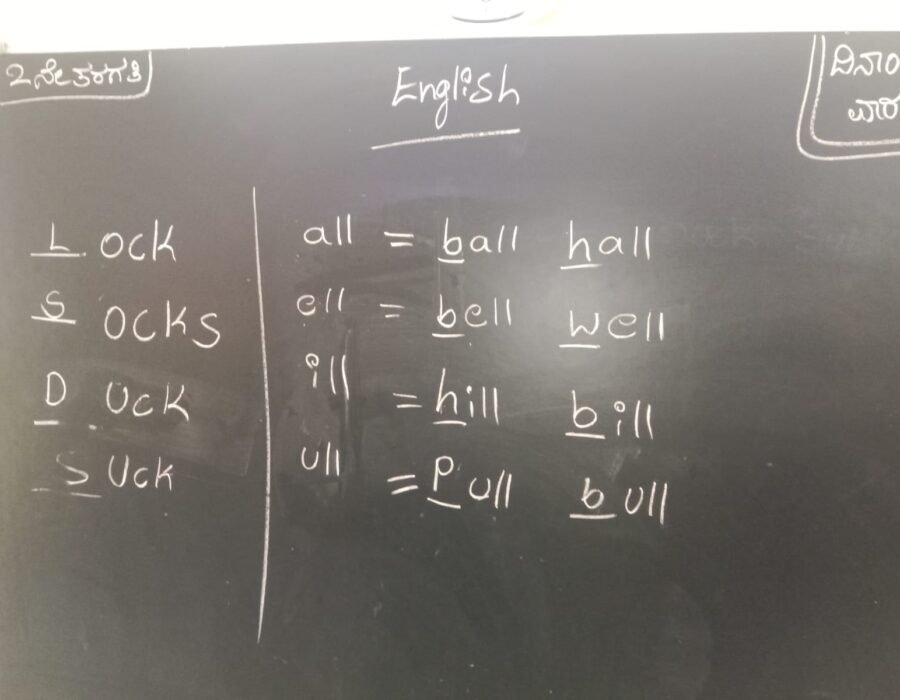 2ನೇ ತರಗತಿ
English
ದಿನಾಂ
ವಾರ
L ock
S ocks
D uck
S uck
all = ball hall
ell = bell well
ill = hill bill
ull = Pull bull